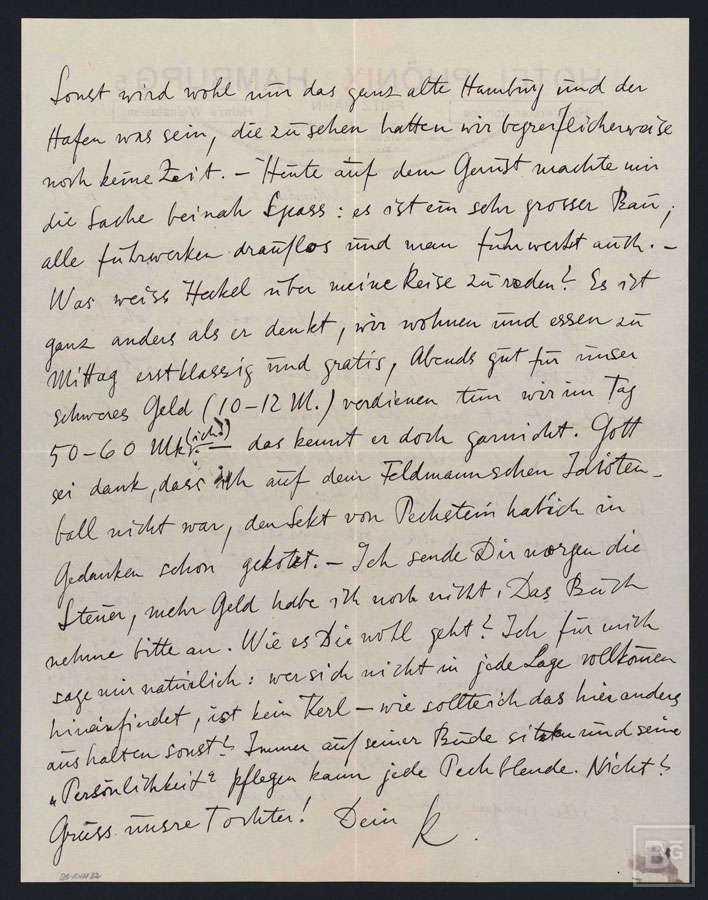 Sonst wird wohl nur das ganz alte Hamburg und der
Hafen was sein, die zu sehen hatten wir begreiflicherweise
noch keine Zeit. – Heute auf dem Gerüst machte mir
die Sache beinah Spass: es ist ein sehr grosser Bau,
alle fuhrwerken drauflos und man fuhrwerkt auch. –
Was weiss Heckel über meine Reise zu reden? Es ist
ganz anders als er denkt, wir wohnen und essen zu
Mittag erstklassig und gratis, Abends gut für unser
schweres Geld (10–12 M.) verdienen tun wir im Tag
50–60 Mk (ich!) – das kennt er doch garnicht. Gott
sei dank, dass ich auf dem Feldmannschen Idioten-
ball nicht war, den Sekt von Pechstein hab ich in
Gedanken schon gekotzt. – Ich sende Dir morgen die
Steuer, mehr Geld habe ich noch nicht. Das Buch
nehme bitte an. Wie es Dir wohl geht? Ich für mich
sage mir natürlich: wer sich nicht in jede Lage vollkomen
hineinfindet, ist kein Kerl – wie sollte ich das hier anders
aushalten sonst? Immer auf seiner Bude sitzen und seine
„Persönlichkeit“ pflegen kann jede Pechblende. Nicht?
Grüss unsre Tochter! Dein K.
HOTEL PHÖNIX HAMBURG
BG